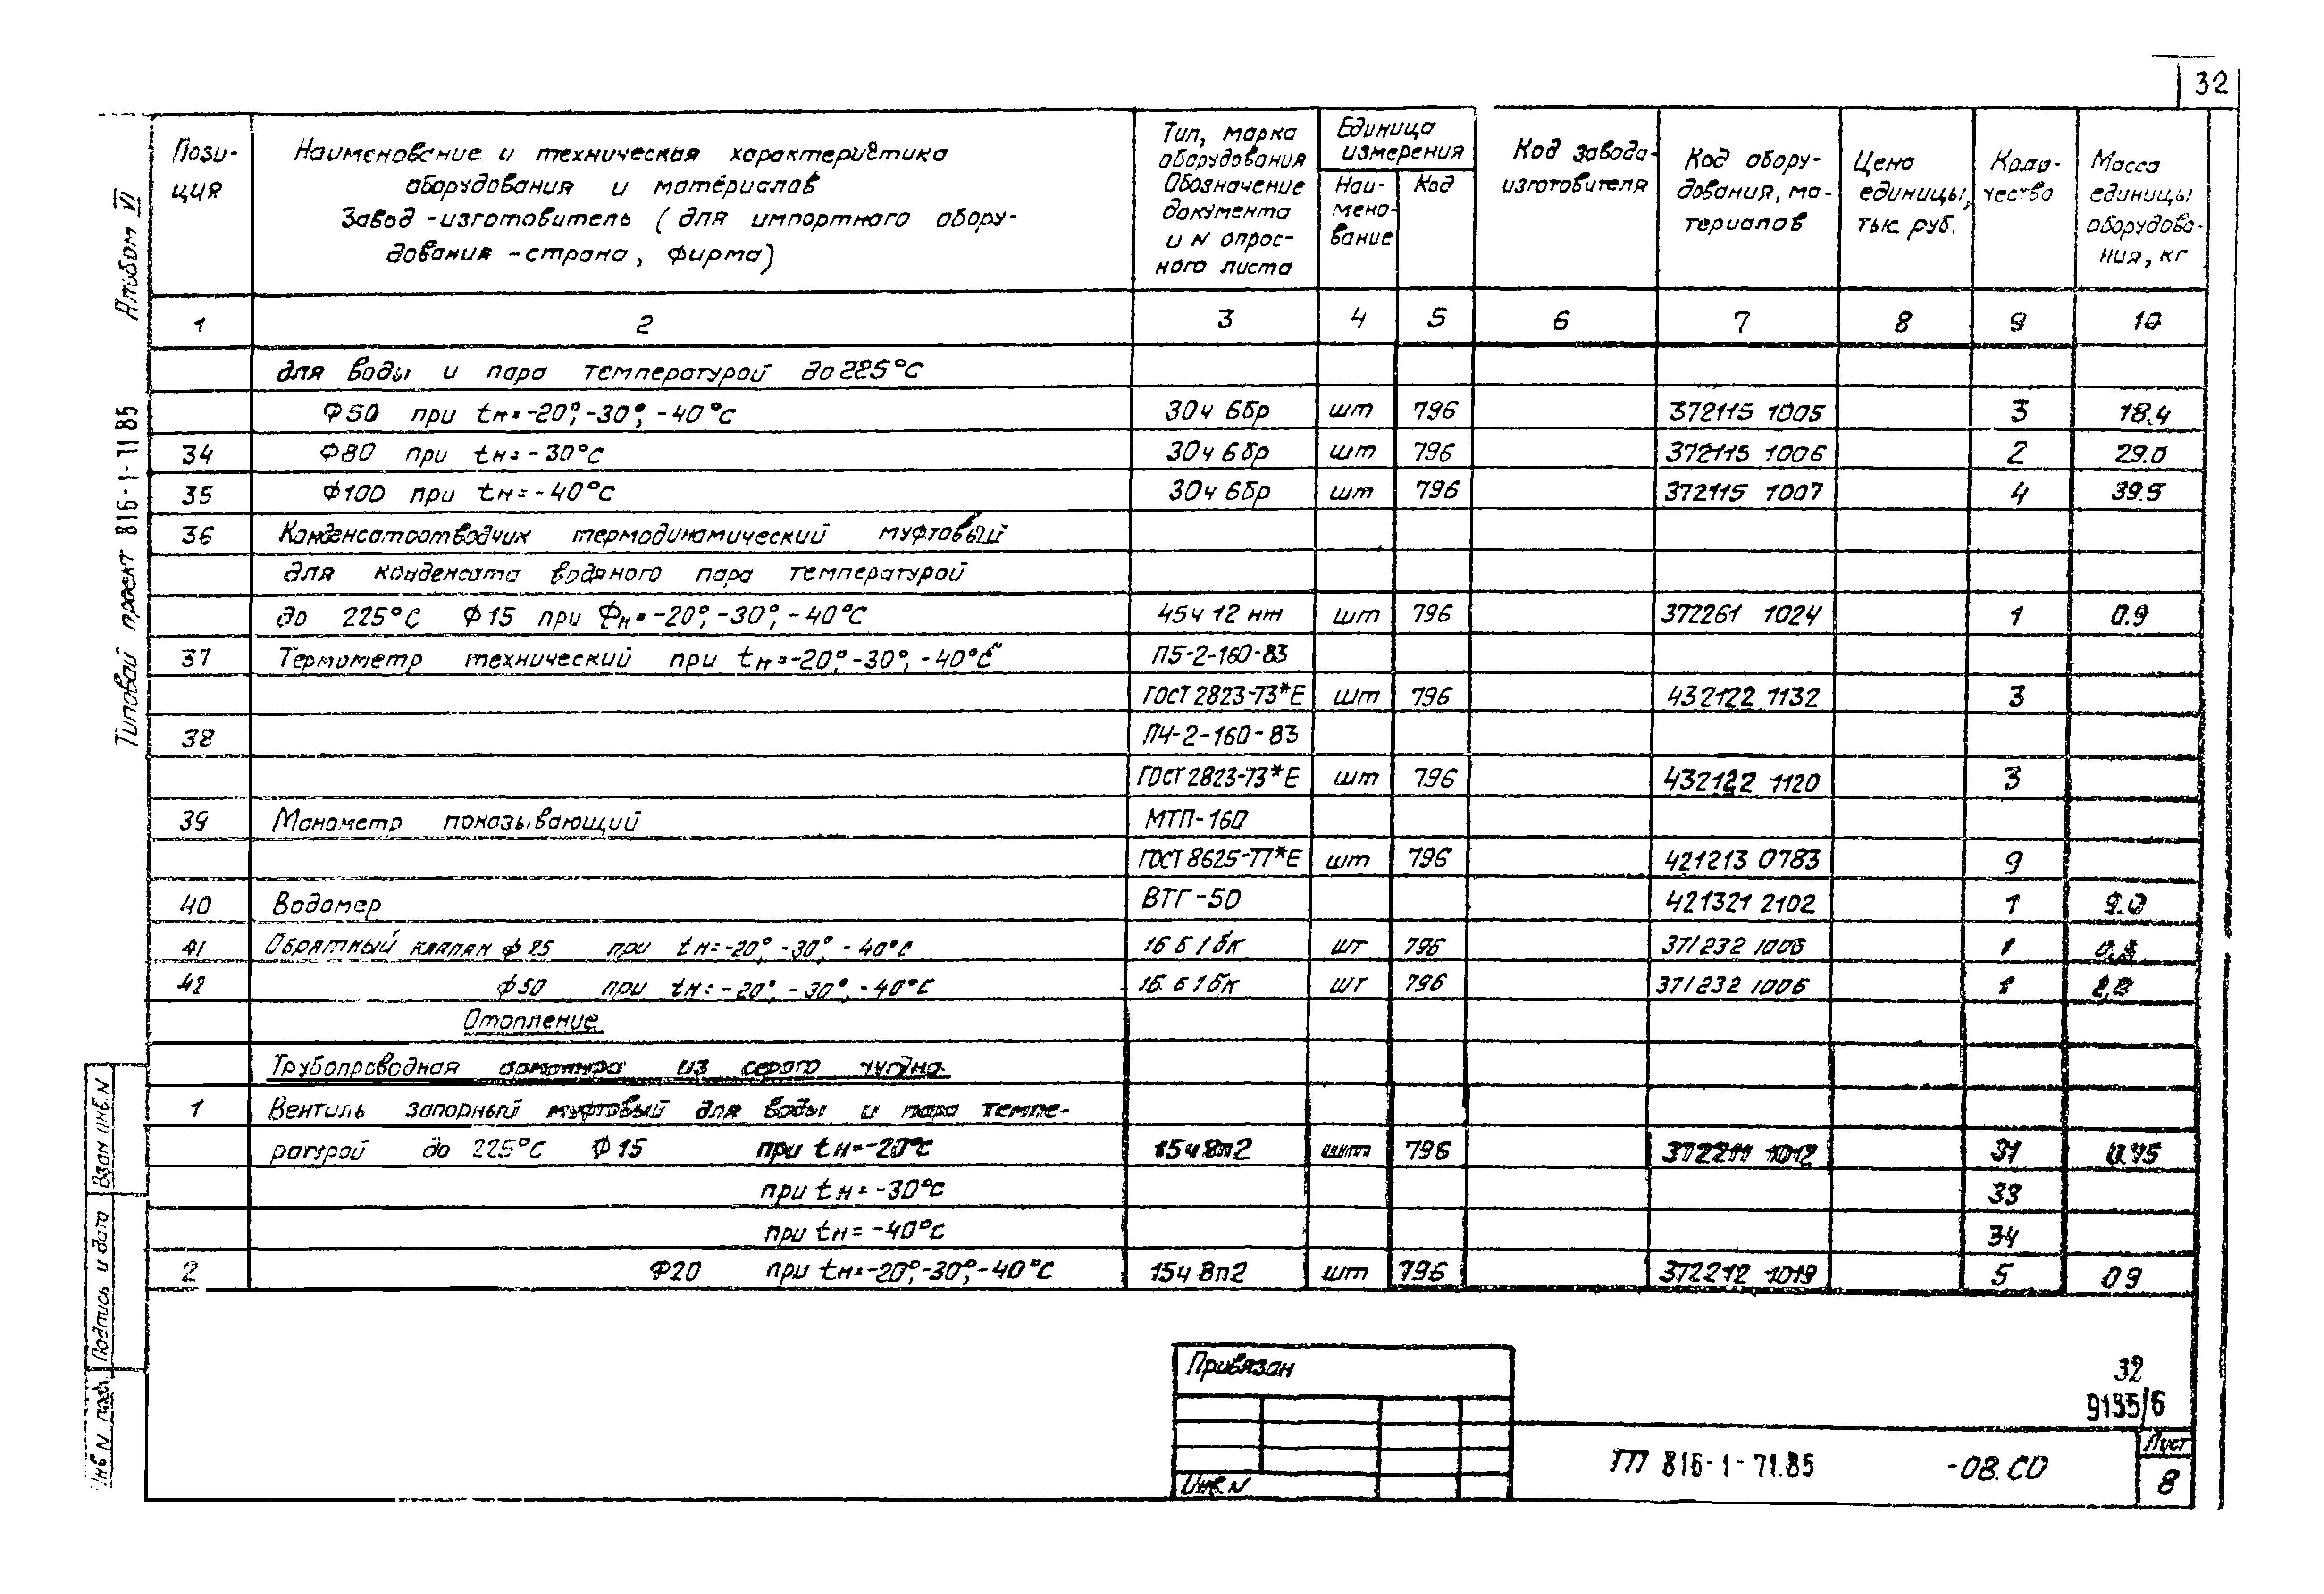 32
Пози-
ция
Наименование и техническая характеристика
оборудования и материалов
Завод-изготовитель (для импортного обору-
дования - страна, фирма)
Тип, марка
оборудования
Обозначение
документа
и N опрос-
ного листа
Единица
измерения
Наи-
мено-
вание
Код
Код завода-
изготовителя
Код обору-
дования, ма-
териалов
Цена
единицы,
тыс. руб.
Коли-
чество
Масса
единицы
оборудова-
ния, кг
1 2 3 4 5 6 7 8 9 10
для воды и пара температурой до 225°С
Ф50 при tн=-20°,-30°,-40°С 30ч 6бр шт 796 372115 1005 3 18.4
34 Ф80 при tн=-30°С 30ч 6бр шт 796 372115 1006 2 29.0
35 Ф100 при tн=-40°С 30ч 6бр шт 796 372115 1007 4 39.5
36 Конденсатоотводчик термодинамический муфтовый
для конденсата водяного пара температурой
до 225°С Ф15 при Фн=-20°,-30°,-40°С 45ч 12 нт шт 796 372261 1024 1 0.9
37 Термометр технический при tн=-20°,-30°,-40°С П5-2-160-83
ГОСТ 2823-73*Е шт 796 432122 1132 3
38 П4-2-160-83
ГОСТ 2823-73*Е шт 796 432122 1120 3
39 Манометр показывающий МТП-160
ГОСТ 8625-77*Е шт 796 421213 0783 9
40 Водомер ВТГ-50 421321 2102 1 9.0
41 Обратный клапан ф25 при tн=-20°,-30°,-40°С 16 Б 1бк шт 796 371232 1 
42 ф50 при tн=-20°,-30°,-40°С 16 Б 1бк шт 796 371232 1006 1
Отопление
Трубопроводная арматура из серого чугуна
1 Вентиль запорный муфтовый для воды и пара темпе-
ратурой до 225°С Ф15 при tн=-20°С 15ч 8п2 796 372211 1012 31 0.75
при tн=-30°С 33
при tн=-40°С 34
2 Ф20 при tн=-20°,-30°,-40°С 15ч 8п2 шт 796 372212 1019 5 0 9
Альбом VI
Типовой проект 816-1-71 85
Взам инв. N
Подпись и дата
Инв N подл.
Привязан
Инв. N
32
9135/6
ТП 816-1-71.85 -08.СО
Лист
8